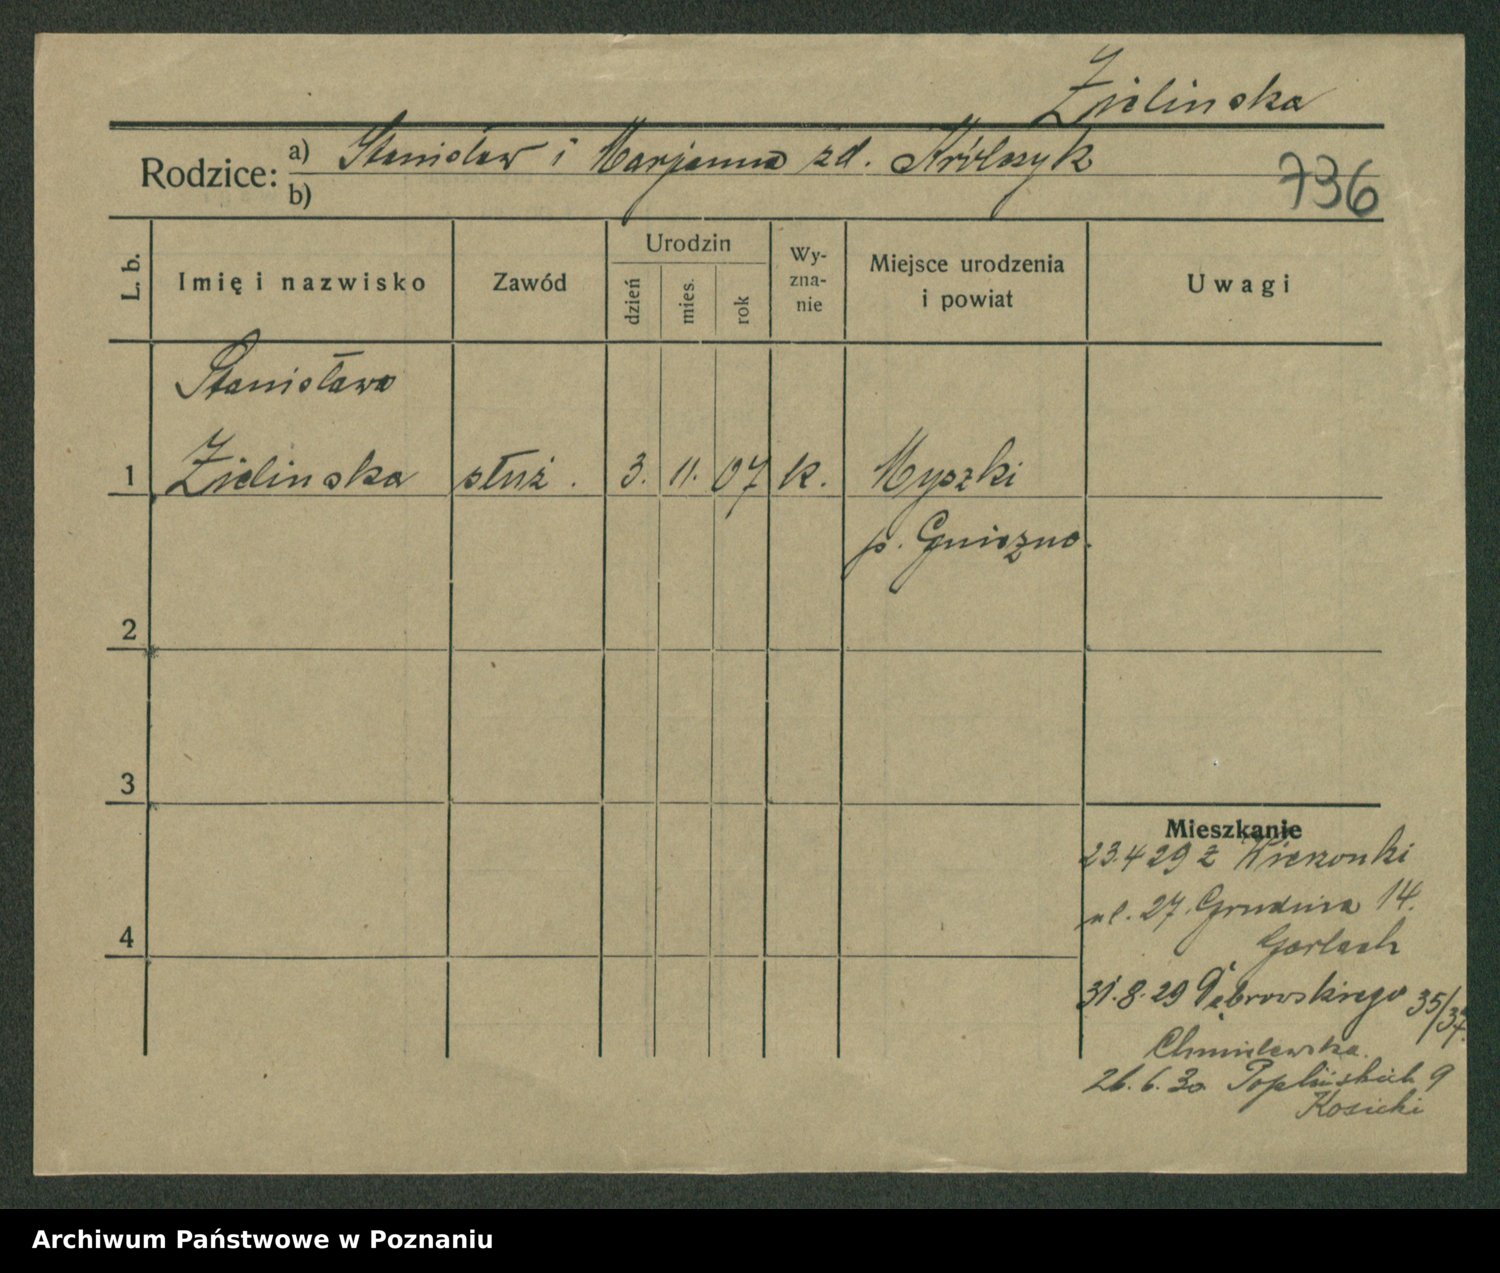 Zielinska
Rodzice: a) Stanisław i Marjanna zd. Królczyk
b)
736
L. b.
Imię i nazwisko
Zawód
Urodzin
dzień
mies.
rok
Wy-
zna-
nie
Miejsce urodzenia
i powiat
Uwagi
Stanisława
1 Zielinska służ. 3. 11. 07 k. Myszki
p. Gniezno.
2
3
Mieszkanie
23.4 29 z
ul. 27. Grudnia 14.
Gerlach
4
31.8.29 Dąbrowskiego 35/37.
Chmielewska.
26.6.30 Poplińskich 9
Kosicki
Archiwum Państwowe w Poznaniu